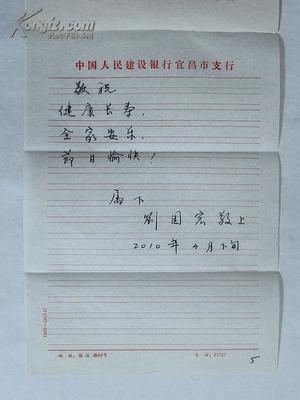 中国人民建设银行宜昌市支行
敬祝
健康长寿,
全家安乐,
节日愉快!
属下
刘国宏敬上
2010年4月下旬
5